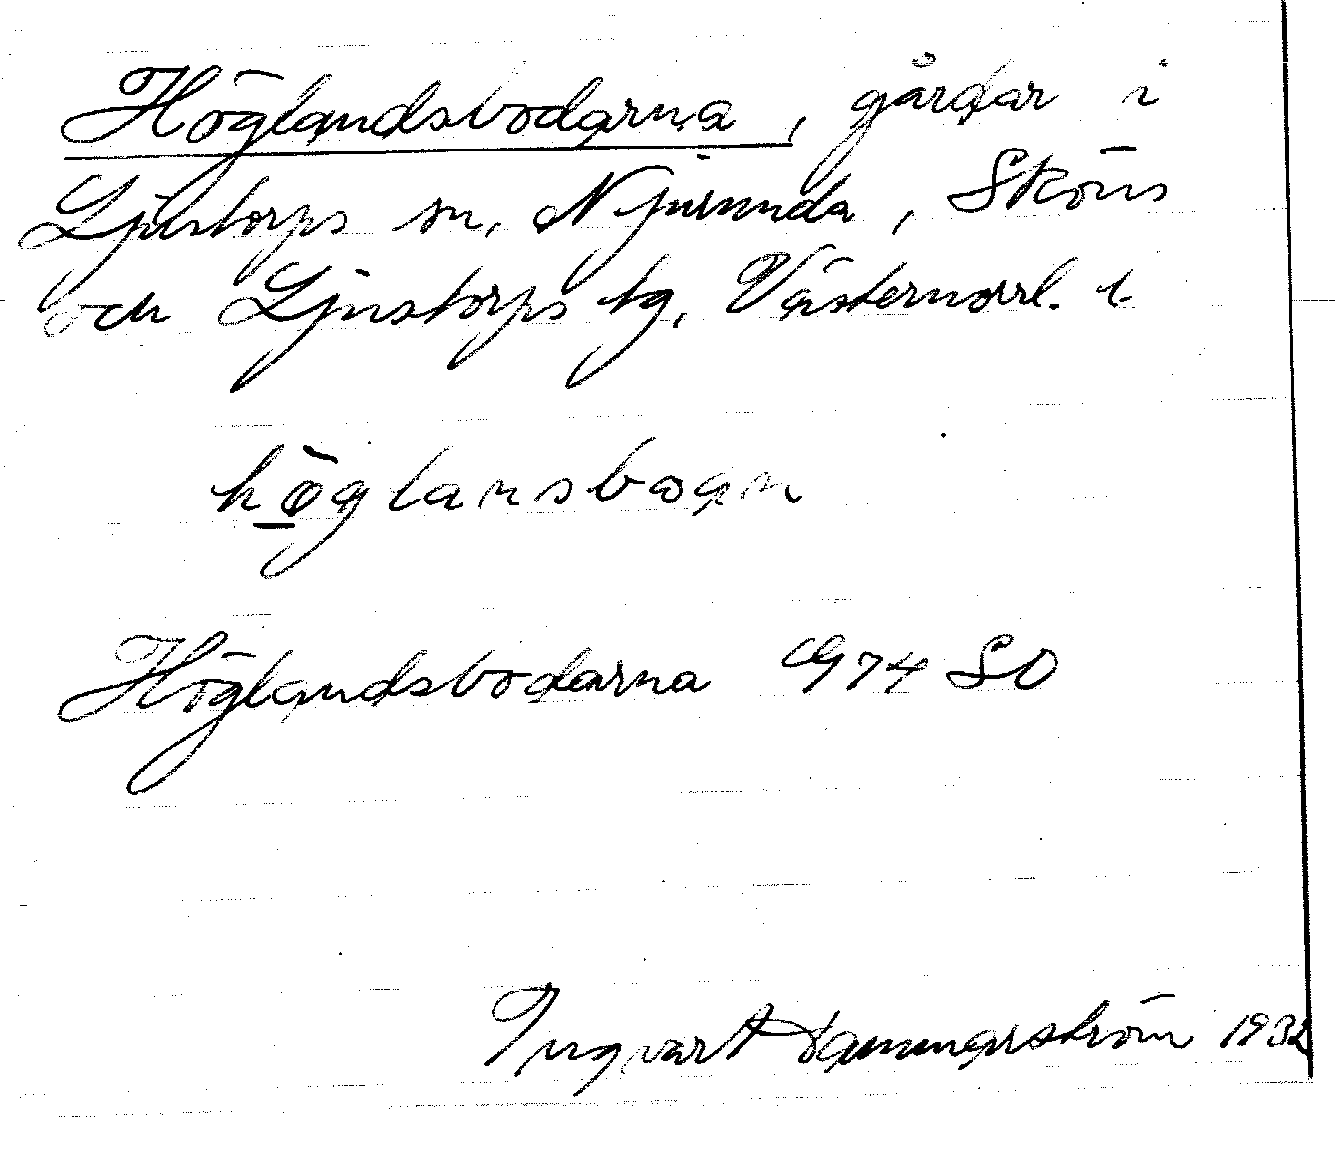 Höglandsbodarna, gårdar i
Ljustorps sn, Njurunda, Sköns
och Ljustorps tg, Västernorrl. l.
höglansboan
Höglandsbodarna G74 SO
Ingvart Hammarström 1932